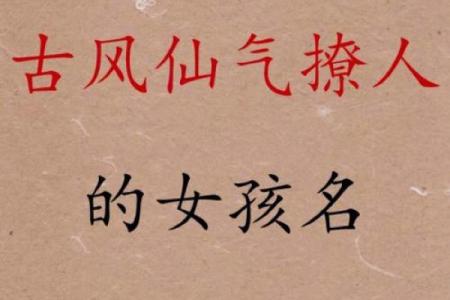 古风仙气撩人
的女孩名